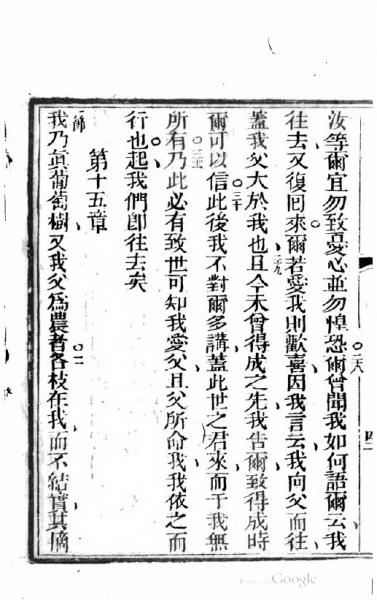 汝等爾宜勿致憂心並勿惶恐爾曾聞我如何語爾云我
二八
往去又復回來爾若愛我則歡喜因我言云我向父而往
二九
蓋我父大於我也且今未曾得成之先我告爾致得成時
三十
爾可以信此後我不對爾多講蓋此世之君來而于我無
三一
所有乃此必有致世可知我愛父且父所命我我依之而
行也起我們卽往去矣
第十五章
一節
我乃眞葡萄樹又我父爲農者各枝在我而不結實其摘
二
Google